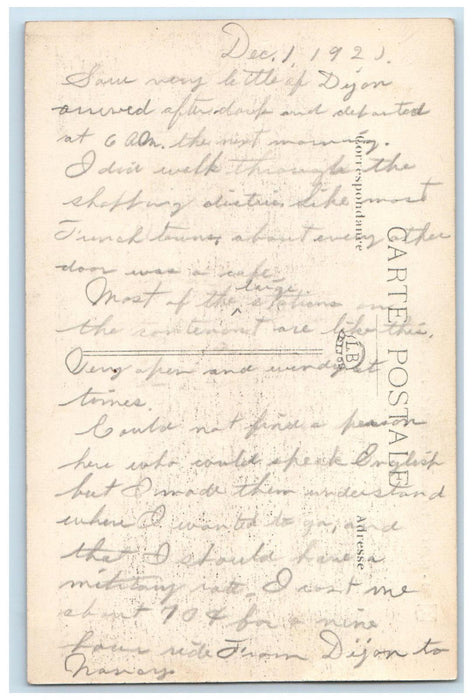 Dec. 1, 1921.
Saw very little of Dijon
arrived after dark and departed
at 6 A.M. the next morning.
I did walk through the
shopping district. Like most
French towns, about every other
door was a cafe.
Most of the large stations on
the continent are like this.
Very open and windy at
times.
Could not find a person
here who could speak English
but I made them understand
where I wanted to go, and
that I should have a
military rate. I cost me
about 70¢ for a nine
hour ride from Dijon to
Nancy.
CARTE POSTALE
Correspondance
Adresse
LB
DIJON